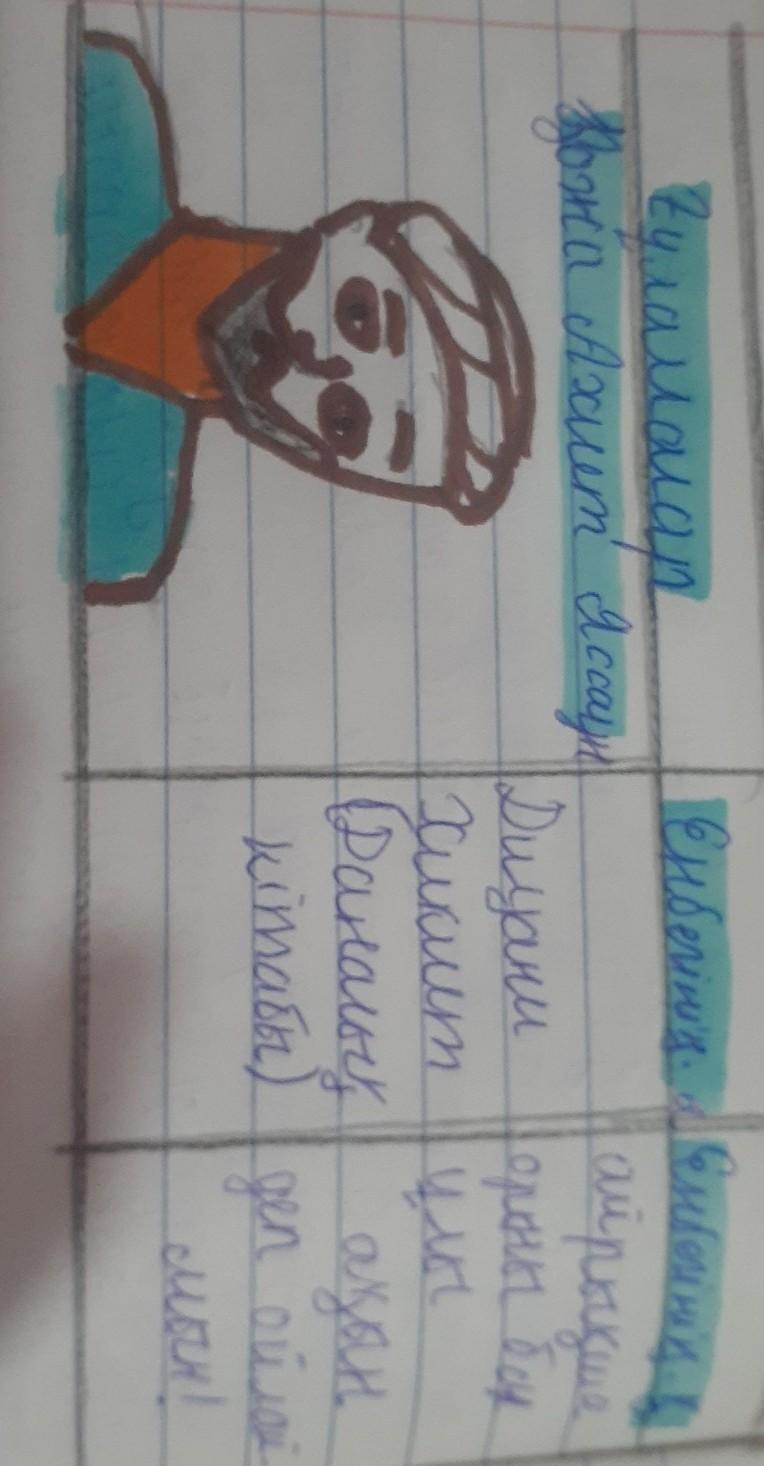 Ғұламалар
Қожа Ахмет Ясауи
Еңбегінің.
Диуани
Хикмет
(Даналық
кітабы)
Еңбегінің.
айрықша
орны бар
ұлы
ақын
деп ойлай
мын!